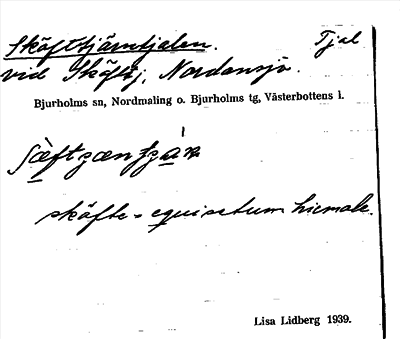 Skäfttjärntjalen. Tjal
vid Skäftj, Nordansjö.
Bjurholms sn, Nordmaling o. Bjurholms tg, Västerbottens l.
skäfte = equisetum hiemale.
Lisa Lidberg 1939.